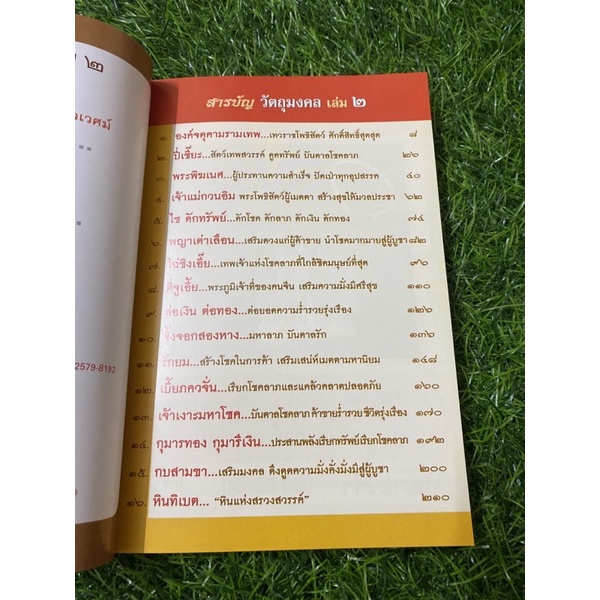 ๒
ลเวศม์
2579-8192
สารบัญ วัตถุมงคล เล่ม ๒
๑. องค์จตุคามรามเทพ...เทวราชโพธิสัตว์ ศักดิ์สิทธิ์สุดสุด ๘
๒. ปี่เซียะ...สัตว์เทพสวรรค์ ดูดทรัพย์ บันดาลโชคลาภ ๒๖
๓. พระพิฆเนศ...ผู้ประทานความสำเร็จ ปัดเป่าทุกอุปสรรค ๔๐
๔. เจ้าแม่กวนอิม พระโพธิสัตว์ผู้เมตตา สร้างสุขให้มวลประชา ๖๒
๕. ไซ ดักทรัพย์...ดักโชค ดักลาภ ดักเงิน ดักทอง ๗๔
๖. พญาเต่าเลือน...เสริมดวงแก่ผู้ค้าขาย นำโชคมากมายสู่ผู้บูชา ๘๒
๗. ไฉ่ซิงเอี๊ย...เทพเจ้าแห่งโชคลาภที่ใกล้ชิดมนุษย์ที่สุด ๙๖
๘. ตี่จู่เอี๊ย...พระภูมิเจ้าที่ของคนจีน เสริมความมั่งมีศรีสุข ๑๑๐
๙. ต่อเงิน ต่อทอง...ต่อยอดความร่ำรวยรุ่งเรือง ๑๒๖
๑๐. จิ้งจอกสองหาง...มหาลาภ บันดาลรัก ๑๓๖
๑๑. รักยม...สร้างโชคในการค้า เสริมเสน่ห์เมตตามหานิยม ๑๔๘
๑๒. เบี้ยภควจั่น...เรียกโชคลาภและแคล้วคลาดปลอดภัย ๑๖๐
๑๓. เจ้าเงาะมหาโชค...บันดาลโชคลาภ ค้าขายร่ำรวย ชีวิตรุ่งเรือง ๑๗๐
๑๔. กุมารทอง กุมารีเงิน...ประสานพลังเรียกทรัพย์เรียกโชคลาภ ๑๙๒
๑๕. กบสามขา...เสริมมงคล ดึงดูดความมั่งคั่งมั่งมีสู่ผู้บูชา ๒๐๐
๑๖. หินทิเบต... “หินแห่งสรวงสวรรค์” ๒๑๐